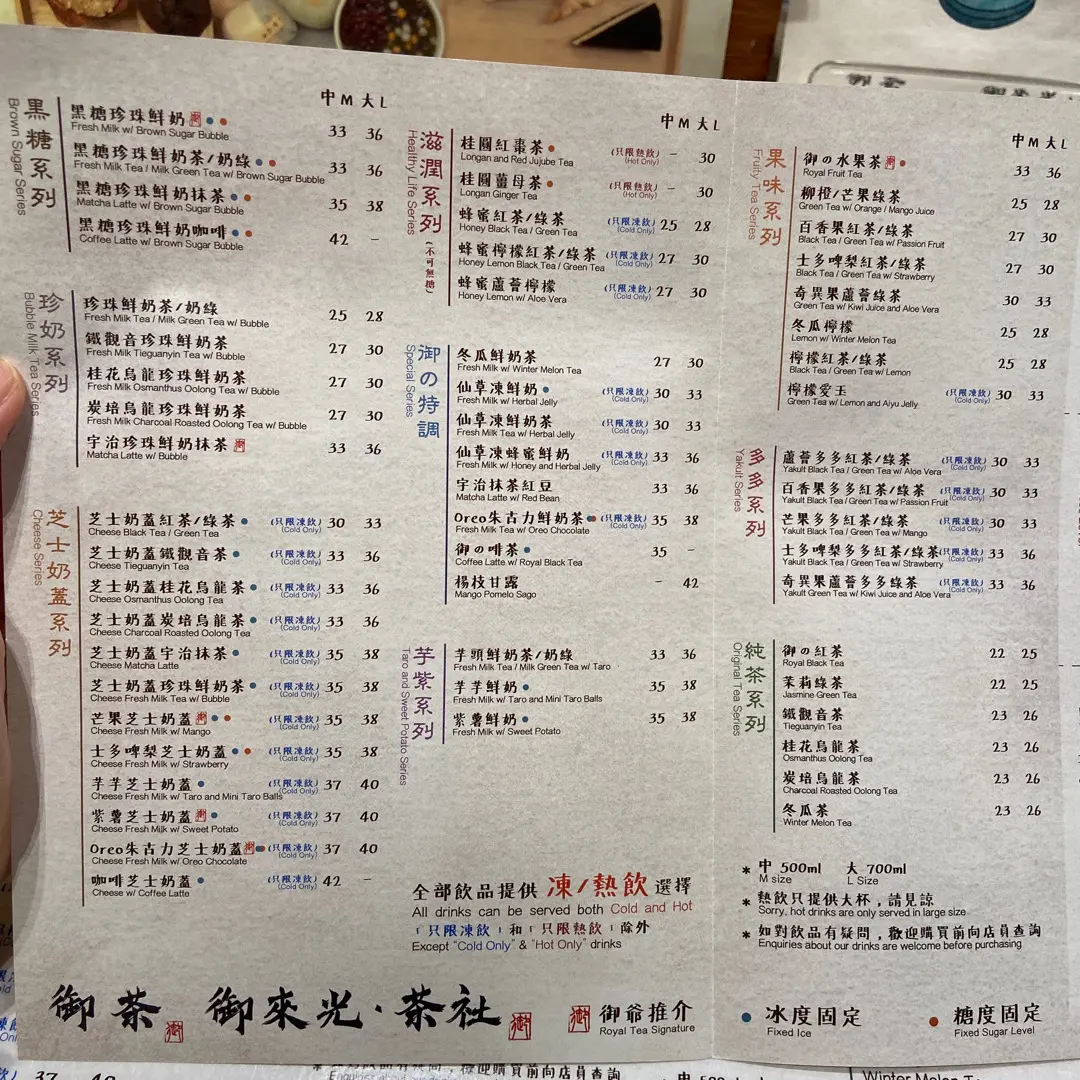 黑糖系列
Brown Sugar Series
中M 大L
黑糖珍珠鮮奶 33 36
Fresh Milk w/ Brown Sugar Bubble
黑糖珍珠鮮奶茶/奶綠 33 36
Fresh Milk Tea / Milk Green Tea w/ Brown Sugar Bubble
黑糖珍珠鮮奶抹茶 35 38
Matcha Latte w/ Brown Sugar Bubble
黑糖珍珠鮮奶咖啡 42 –
Coffee Latte w/ Brown Sugar Bubble
珍奶系列
Bubble Milk Tea Series
珍珠鮮奶茶/奶綠 25 28
Fresh Milk Tea / Milk Green Tea w/ Bubble
鐵觀音珍珠鮮奶茶 27 30
Fresh Milk Tieguanyin Tea w/ Bubble
桂花烏龍珍珠鮮奶茶 27 30
Fresh Milk Osmanthus Oolong Tea w/ Bubble
炭培烏龍珍珠鮮奶茶 27 30
Fresh Milk Charcoal Roasted Oolong Tea w/ Bubble
宇治珍珠鮮奶抹茶 33 36
Matcha Latte w/ Bubble
芝士奶蓋系列
Cheese Series
芝士奶蓋紅茶/綠茶 (只限凍飲) 30 33
Cheese Black Tea / Green Tea (Cold Only)
芝士奶蓋鐵觀音茶 (只限凍飲) 33 36
Cheese Tieguanyin Tea (Cold Only)
芝士奶蓋桂花烏龍茶 (只限凍飲) 33 36
Cheese Osmanthus Oolong Tea (Cold Only)
芝士奶蓋炭培烏龍茶 (只限凍飲) 33 36
Cheese Charcoal Roasted Oolong Tea (Cold Only)
芝士奶蓋宇治抹茶 (只限凍飲) 35 38
Cheese Matcha Latte (Cold Only)
芝士奶蓋珍珠鮮奶茶 (只限凍飲) 35 38
Cheese Fresh Milk Tea w/ Bubble (Cold Only)
芒果芝士奶蓋 (只限凍飲) 35 38
Cheese Fresh Milk w/ Mango (Cold Only)
士多啤梨芝士奶蓋 (只限凍飲) 35 38
Cheese Fresh Milk w/ Strawberry (Cold Only)
芋芋芝士奶蓋 (只限凍飲) 37 40
Cheese Fresh Milk w/ Taro and Mini Taro Balls (Cold Only)
紫薯芝士奶蓋 (只限凍飲) 37 40
Cheese Fresh Milk w/ Sweet Potato (Cold Only)
Oreo朱古力芝士奶蓋 (只限凍飲) 37 40
Cheese Fresh Milk w/ Oreo Chocolate (Cold Only)
咖啡芝士奶蓋 (只限凍飲) 42 –
Cheese w/ Coffee Latte (Cold Only)
滋潤系列 (不可無糖)
Healthy Life Series
中M 大L
桂圓紅棗茶 (只限熱飲) – 30
Longan and Red Jujube Tea (Hot Only)
桂圓薑母茶 (只限熱飲) – 30
Longan Ginger Tea (Hot Only)
蜂蜜紅茶/綠茶 (只限凍飲) 25 28
Honey Black Tea / Green Tea (Cold Only)
蜂蜜檸檬紅茶/綠茶 (只限凍飲) 27 30
Honey Lemon Black Tea / Green Tea (Cold Only)
蜂蜜蘆薈檸檬 (只限凍飲) 27 30
Honey Lemon w/ Aloe Vera (Cold Only)
御の特調
Special Series
冬瓜鮮奶茶 27 30
Fresh Milk w/ Winter Melon Tea
仙草凍鮮奶 (只限凍飲) 30 33
Fresh Milk w/ Herbal Jelly (Cold Only)
仙草凍鮮奶茶 (只限凍飲) 30 33
Fresh Milk Tea w/ Herbal Jelly (Cold Only)
仙草凍蜂蜜鮮奶 (只限凍飲) 33 36
Fresh Milk w/ Honey and Herbal Jelly (Cold Only)
宇治抹茶紅豆 33 36
Matcha Latte w/ Red Bean
Oreo朱古力鮮奶茶 (只限凍飲) 35 38
Fresh Milk Tea w/ Oreo Chocolate (Cold Only)
御の啡茶 35 –
Coffee Latte w/ Royal Black Tea
楊枝甘露 – 42
Mango Pomelo Sago
芋紫系列
Taro and Sweet Potato Series
芋頭鮮奶茶/奶綠 33 36
Fresh Milk Tea / Milk Green Tea w/ Taro
芋芋鮮奶 35 38
Fresh Milk w/ Taro and Mini Taro Balls
紫薯鮮奶 35 38
Fresh Milk w/ Sweet Potato
全部飲品提供 凍/熱飲 選擇
All drinks can be served both Cold and Hot
「只限凍飲」和「只限熱飲」除外
Except "Cold Only" & "Hot Only" drinks
果味系列
Fruity Tea Series
中M 大L
御の水果茶 33 36
Royal Fruit Tea
柳橙/芒果綠茶 25 28
Green Tea w/ Orange / Mango Juice
百香果紅茶/綠茶 27 30
Black Tea / Green Tea w/ Passion Fruit
士多啤梨紅茶/綠茶 27 30
Black Tea / Green Tea w/ Strawberry
奇異果蘆薈綠茶 30 33
Green Tea w/ Kiwi Juice and Aloe Vera
冬瓜檸檬 25 28
Lemon w/ Winter Melon Tea
檸檬紅茶/綠茶 25 28
Black Tea / Green Tea w/ Lemon
檸檬愛玉 (只限凍飲) 30 33
Green Tea w/ Lemon and Aiyu Jelly (Cold Only)
多多系列
Yakult Series
蘆薈多多紅茶/綠茶 (只限凍飲) 30 33
Yakult Black Tea / Green Tea w/ Aloe Vera (Cold Only)
百香果多多紅茶/綠茶 (只限凍飲) 30 33
Yakult Black Tea / Green Tea w/ Passion Fruit (Cold Only)
芒果多多紅茶/綠茶 (只限凍飲) 30 33
Yakult Black Tea / Green Tea w/ Mango (Cold Only)
士多啤梨多多紅茶/綠茶 (只限凍飲) 33 36
Yakult Black Tea / Green Tea w/ Strawberry (Cold Only)
奇異果蘆薈多多綠茶 (只限凍飲) 33 36
Yakult Green Tea w/ Kiwi Juice and Aloe Vera (Cold Only)
純茶系列
Original Tea Series
御の紅茶 22 25
Royal Black Tea
茉莉綠茶 22 25
Jasmine Green Tea
鐵觀音茶 23 26
Tieguanyin Tea
桂花烏龍茶 23 26
Osmanthus Oolong Tea
炭培烏龍茶 23 26
Charcoal Roasted Oolong Tea
冬瓜茶 23 26
Winter Melon Tea
* 中 500ml 大 700ml
M size L Size
* 熱飲只提供大杯，請見諒
Sorry, hot drinks are only served in large size
* 如對飲品有疑問，歡迎購買前向店員查詢
Enquiries about our drinks are welcome before purchasing
御茶 御來光·茶社
御爺推介
Royal Tea Signature
冰度固定
Fixed Ice
糖度固定
Fixed Sugar Level
37 40
歡迎購買前向店員查詢
Winter Melon